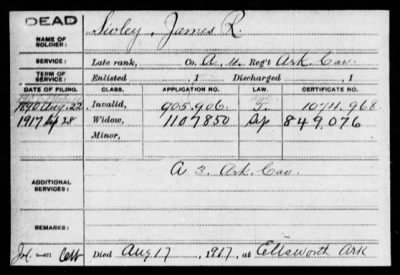 DEAD
NAME OF SOLDIER: Sivley, James R.
SERVICE: Late rank, Co. A, 4, Reg't Ark. Cav.
TERM OF SERVICE: Enlisted , 1 Discharged , 1
DATE OF FILING. CLASS. APPLICATION NO. LAW. CERTIFICATE NO.
1890 Aug. 22 Invalid, 905.906. 1074.968
1917 Sep 28 Widow, 1107850 Ap 849,076
Minor,
ADDITIONAL SERVICES: A 3. Ark. Cav.
REMARKS:
Died Aug 17, 1917, at Ellsworth Ark